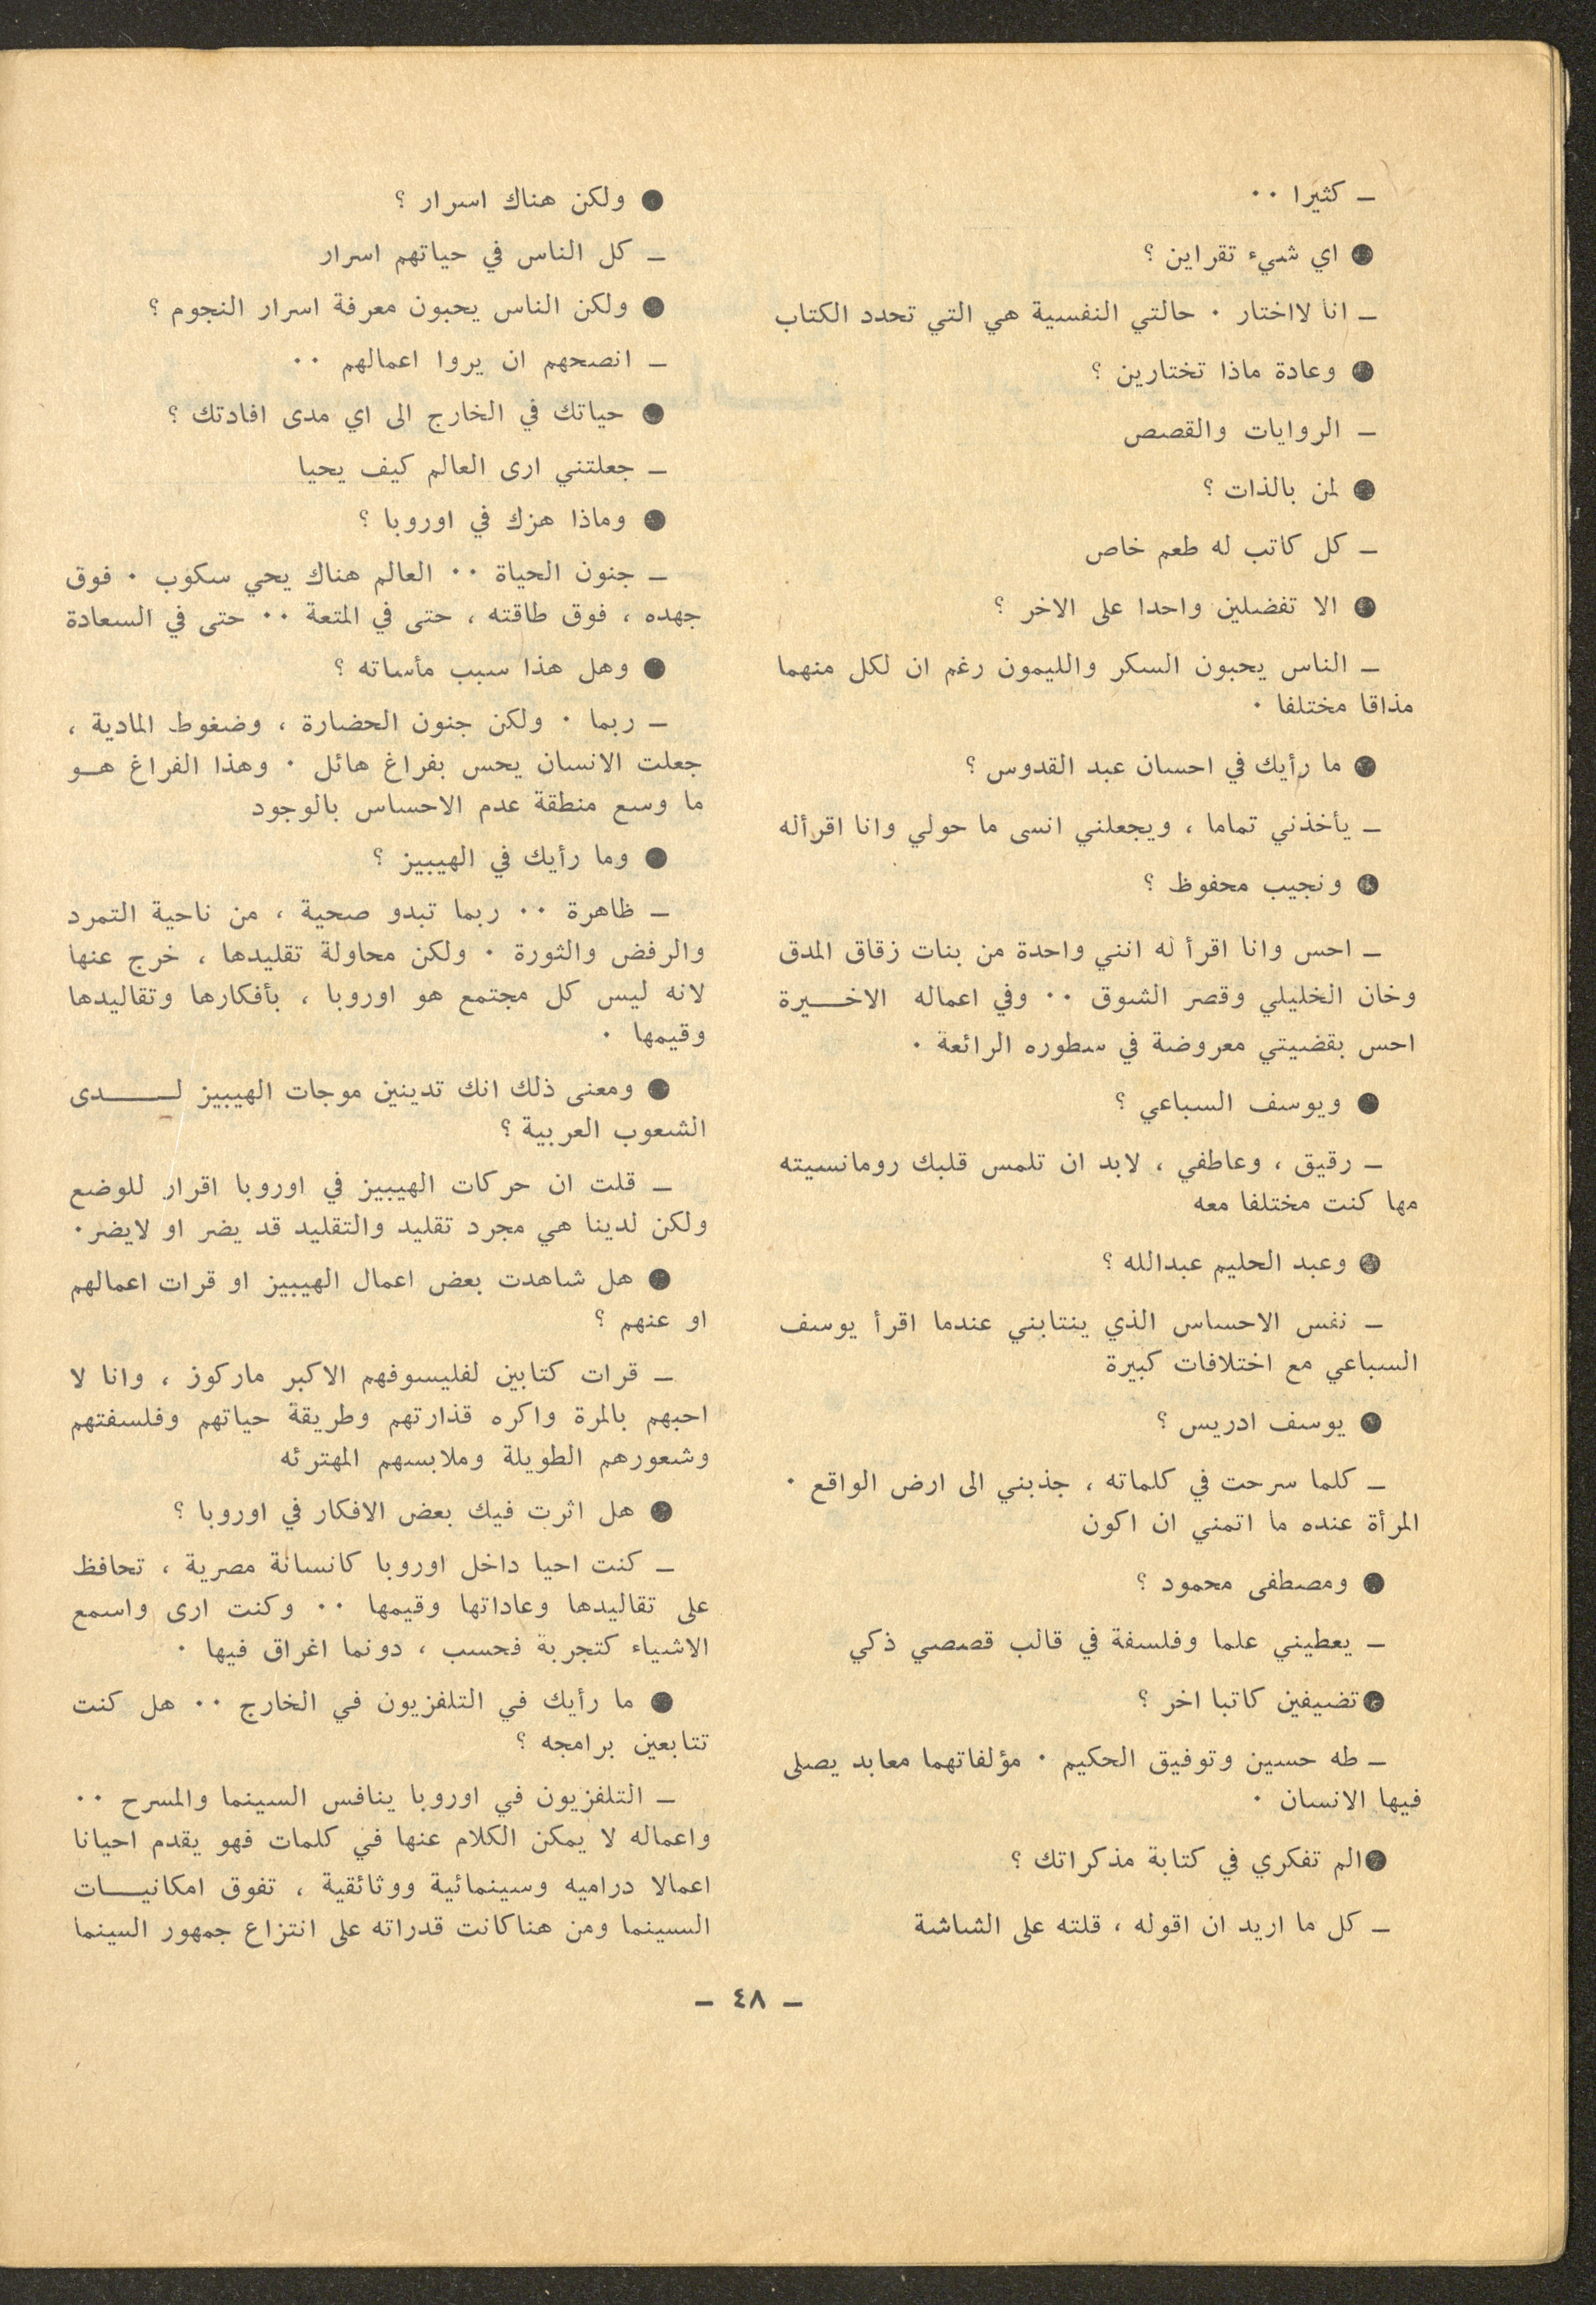 – كثيرا ٠٠
● اي شيء تقراين ؟
– انا لااختار ٠ حالتي النفسية هي التي تحدد الكتاب
● وعادة ماذا تختارين ؟
– الروايات والقصص
● لمن بالذات ؟
– كل كاتب له طعم خاص
● الا تفضلين واحدا على الاخر ؟
– الناس يحبون السكر والليمون رغم ان لكل منهما
مذاقا مختلفا ٠
● ما رأيك في احسان عبد القدوس ؟
– يأخذني تماما ، ويجعلني انسى ما حولي وانا اقرأله
● ونجيب محفوظ ؟
– احس وانا اقرأ له انني واحدة من بنات زقاق المدق
وخان الخليلي وقصر الشوق ٠٠ وفي اعماله الاخـــيرة
احس بقضيتي معروضة في سطوره الرائعة ٠
● ويوسف السباعي ؟
– رقيق ، وعاطفي ، لابد ان تلمس قلبك رومانسيته
مها كنت مختلفا معه
● وعبد الحليم عبدالله ؟
– نفس الاحساس الذي ينتابني عندما اقرأ يوسف
السباعي مع اختلافات كبيرة
● يوسف ادريس ؟
– كلما سرحت في كلماته ، جذبني الى ارض الواقع ٠
المرأة عنده ما اتمني ان اكون
● ومصطفى محمود ؟
– يعطيني علما وفلسفة في قالب قصصي ذكي
● تضيفين كاتبا اخر ؟
– طه حسين وتوفيق الحكيم ٠ مؤلفاتهما معابد يصلى
فيها الانسان ٠
● الم تفكري في كتابة مذكراتك ؟
– كل ما اريد ان اقوله ، قلته على الشاشة
● ولكن هناك اسرار ؟
– كل الناس في حياتهم اسرار
● ولكن الناس يحبون معرفة اسرار النجوم ؟
– انصحهم ان يروا اعمالهم ٠٠
● حياتك في الخارج الى اي مدى افادتك ؟
– جعلتني ارى العالم كيف يحيا
● وماذا هزك في اوروبا ؟
– جنون الحياة ٠٠ العالم هناك يحي سكوب ٠ فوق
جهده ، فوق طاقته ، حتى في المتعة ٠٠ حتى في السعادة
● وهل هذا سبب مأساته ؟
– ربما ٠ ولكن جنون الحضارة ، وضغوط المادية ،
جعلت الانسان يحس بفراغ هائل ٠ وهذا الفراغ هــو
ما وسع منطقة عدم الاحساس بالوجود
● وما رأيك في الهيبيز ؟
– ظاهرة ٠٠ ربما تبدو صحية ، من ناحية التمرد
والرفض والثورة ٠ ولكن محاولة تقليدها ، خرج عنها
لانه ليس كل مجتمع هو اوروبا ، بأفكارها وتقاليدها
وقيمها ٠
● ومعنى ذلك انك تدينين موجات الهيبيز لــــدى
الشعوب العربية ؟
– قلت ان حركات الهيبيز في اوروبا اقرار للوضع
ولكن لدينا هي مجرد تقليد والتقليد قد يضر او لايضر٠
● هل شاهدت بعض اعمال الهيبيز او قرات اعمالهم
او عنهم ؟
– قرات كتابين لفليسوفهم الاكبر ماركوز ، وانا لا
احبهم بالمرة واكره قذارتهم وطريقة حياتهم وفلسفتهم
وشعورهم الطويلة وملابسهم المهترئه
● هل اثرت فيك بعض الافكار في اوروبا ؟
– كنت احيا داخل اوروبا كانسانة مصرية ، تحافظ
على تقاليدها وعاداتها وقيمها ٠٠ وكنت ارى واسمع
الاشياء كتجربة فحسب ، دونما اغراق فيها ٠
● ما رأيك في التلفزيون في الخارج ٠٠ هل كنت
تتابعين برامجه ؟
– التلفزيون في اوروبا ينافس السينما والمسرح ٠٠
واعماله لا يمكن الكلام عنها في كلمات فهو يقدم احيانا
اعمالا دراميه وسينمائية ووثائقية ، تفوق امكانيـــات
السينما ومن هناكانت قدراته على انتزاع جمهور السينما
– ٤٨ –